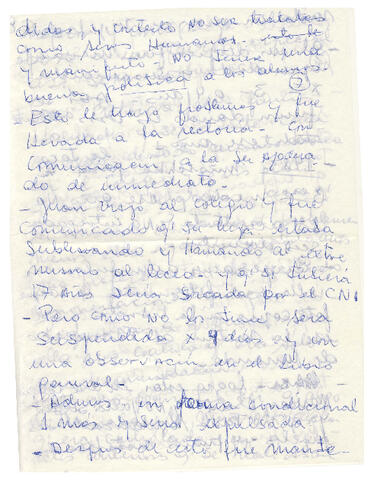 didos y contesto no ser tratados
como seres Humanos. -
y manifesto - No tener una
buena política a los alumnos.
7
Esto le trajo problemas y fue
llevada a la rectoria - con
comunicación a la Sra Apodera
do de inmediato. -
- Juan viajó al colegio y fue
comunicado q su hija estaba
sublevando y llamando al extre
mismo al liceo y q si tubiera
17 Años seria sacada por el CNI
- Pero como no los tiene será
suspendida x 4 días y con
una observación en el libro
personal -
- Además en forma condicional
1 mas y seria expulsada
- Despues de esto fue manda-